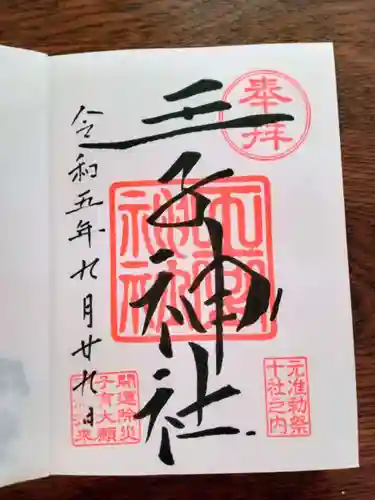 奉拝
王子神社
王子神社
元准勅祭
十社之内
令和五年九月廿九日
開運除災
子育大願